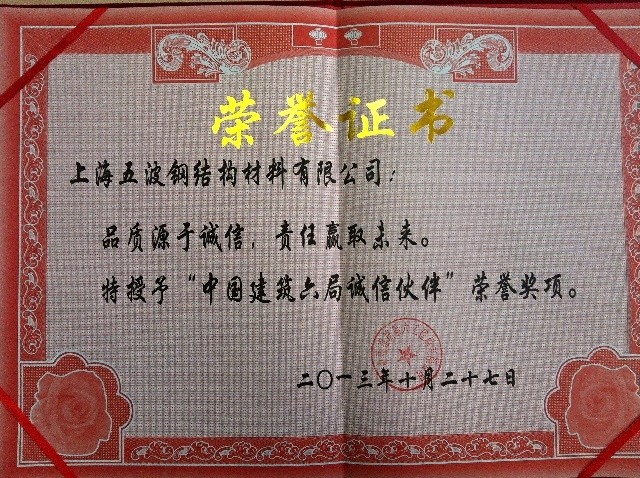 荣誉证书
上海五波钢结构材料有限公司：
品质源于诚信，责任赢取未来。
特授予“中国建筑六局诚信伙伴”荣誉奖项。
二〇一三年十月二十七日